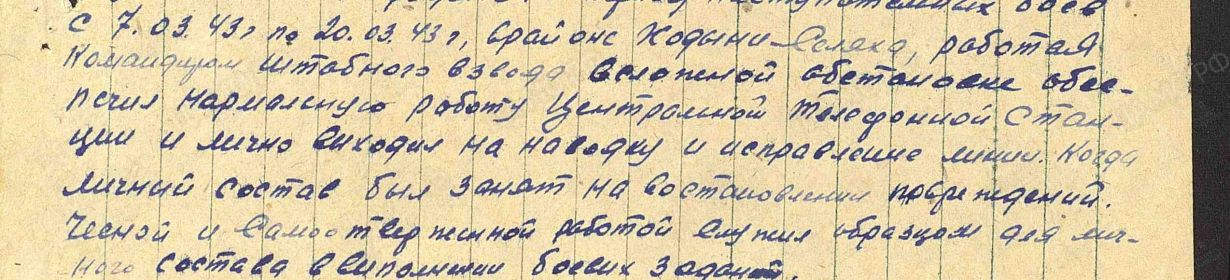 наступательных боев
С 7.03.43г по 20.03.43г, врайоне Ходыни-Селяха, работая
Командиром штабного взвода всложной обстановке обес-
печил нармальную работу Центральной Телефонной Стан-
ции и лично виходил на наводку и исправление линии. Когда
личний состав был занят на востановлении повреждений.
Чесной и Самоотверженной работой служил образцом для лич-
ного состава ввиполнении боевих заданий.